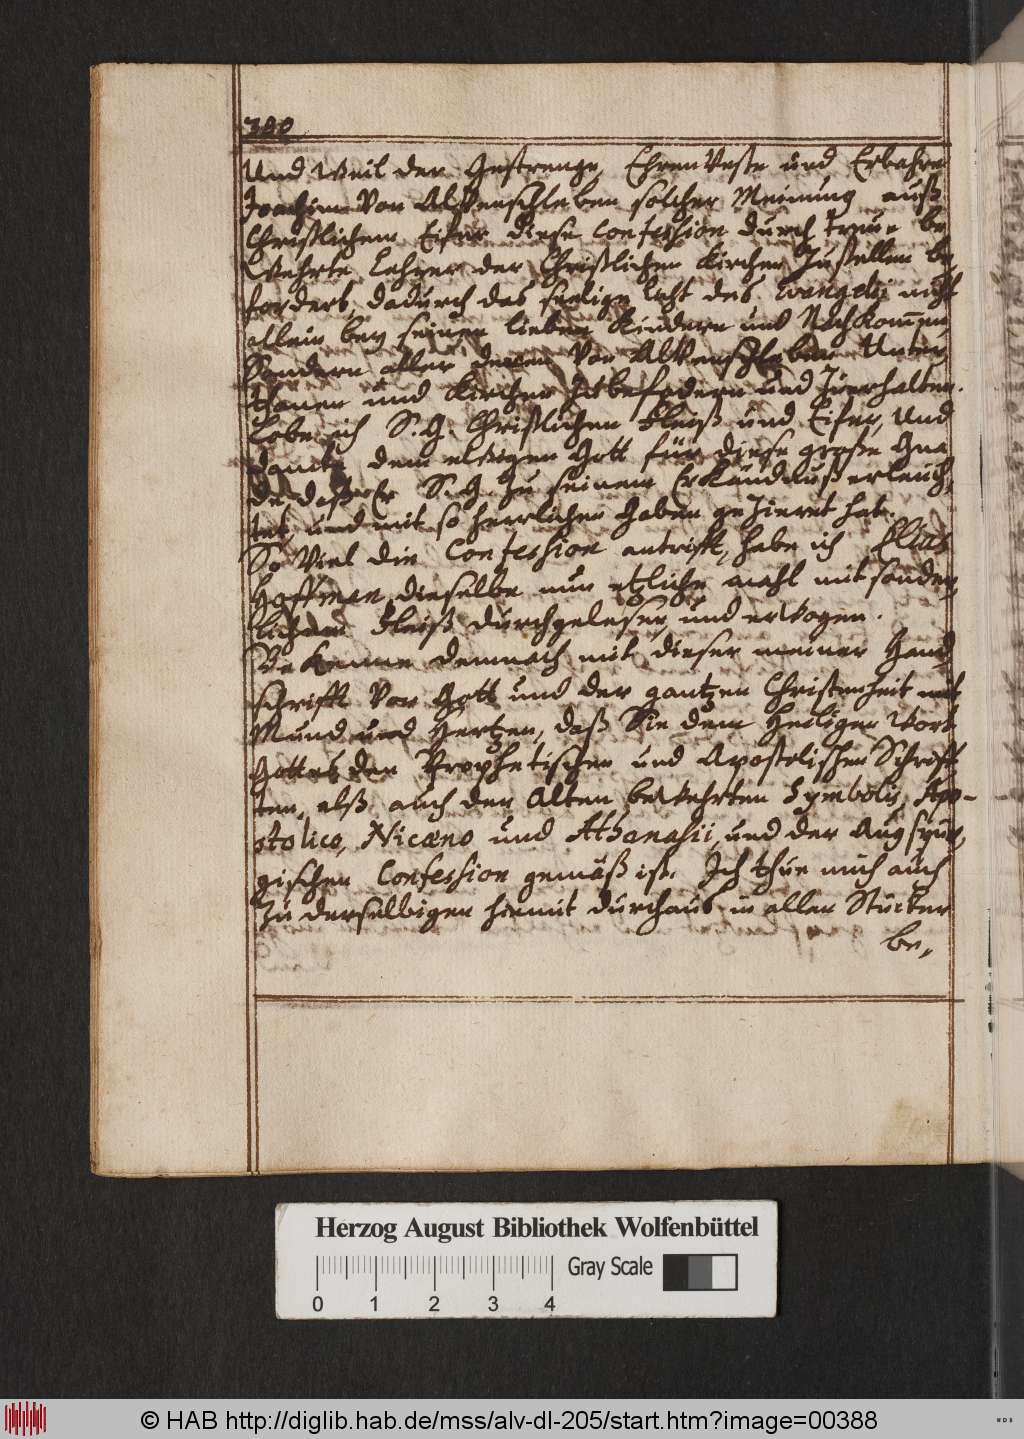 380
Und Weil der Gestrenge, EhrenVeste und Erbahre
Joachim Von Alvenschleben solcher Meinung auß
Christlichem Eifer diese Confession durch treue be
Wehrte Lehrer der Christlichen Kirchen Zustellen be
forders, dadurch das seelige licht des Evangelii nicht
allein bey seinen lieben Kindern und Nachkommen,
Sondern aller deren Von Alvenschleben Unter
thanen und Kirchen Zubefodern und Zuerhalten.
Lobe ich S. G. Christlichen Fleiß und Eifer, Und
dancke dem ewigen Gott für diese große Gna
de daß Er S. G. Zu seinem Erkändnuß erleuch,
tet und mit so herrlichen Gaben geZieret hat.
So Viel die Confession antrifft, habe ich Elias
Hoffman dieselbe nun etzliche mahl mit sonder,
lichem Fleiß durchgelesen und erWogen.
Bekenne demnach mit dieser meiner Hand
schrifft Vor Gott und der gantzen Christenheit mit
Mund und Hertzen, daß Sie dem Heiligen Wort
Gottes der Prophetischen und Apostolischen Schriff
ten, alß auch den Alten beWehrten Symbolis, Apo-
stolico, Nicæno und Athanasii, und der Augspur,
gischen Confession gemäß ist. Ich thue mich auch
Zu derselbigen hiemit durchaus in allen Stücken
be,
Herzog August Bibliothek Wolfenbüttel
Gray Scale
0 1 2 3 4
© HAB http://diglib.hab.de/mss/alv-dl-205/start.htm?image=00388